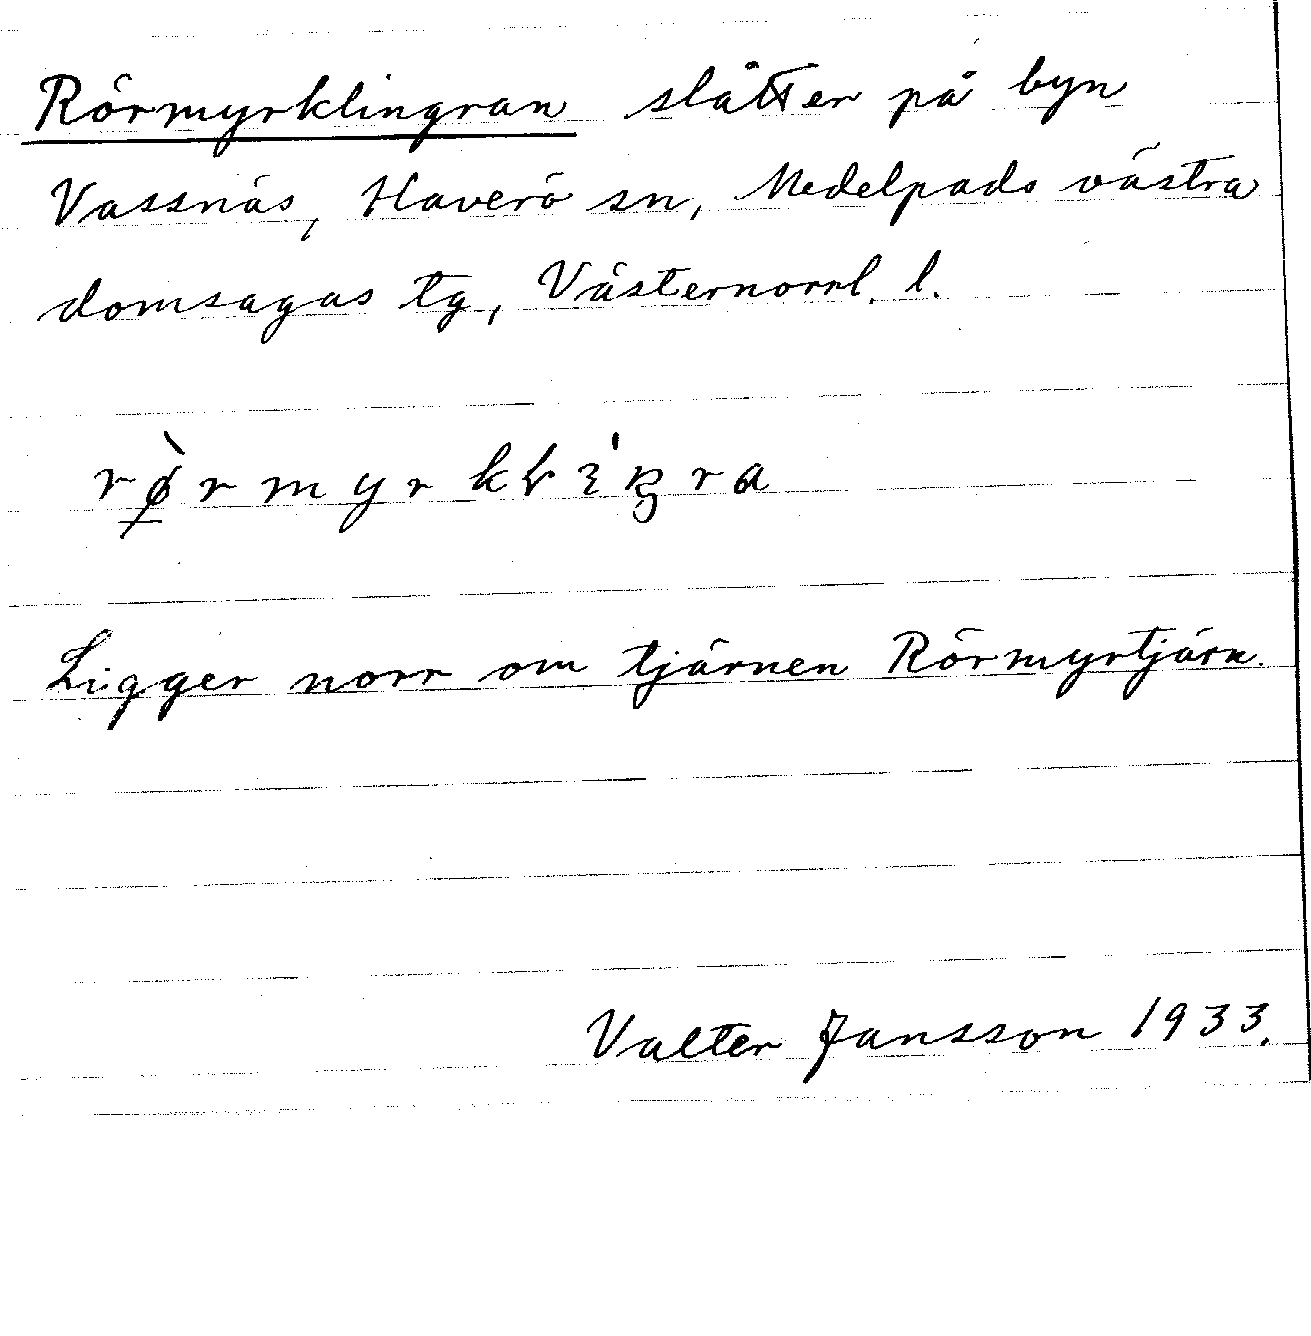 Rörmyrklingran slåtter på byn
Vassnäs, Haverö sn, Medelpads västra
domsagas tg, Västernorrl. l.
Ligger norr om tjärnen Rörmyrtjärn.
Valter Jansson 1933.